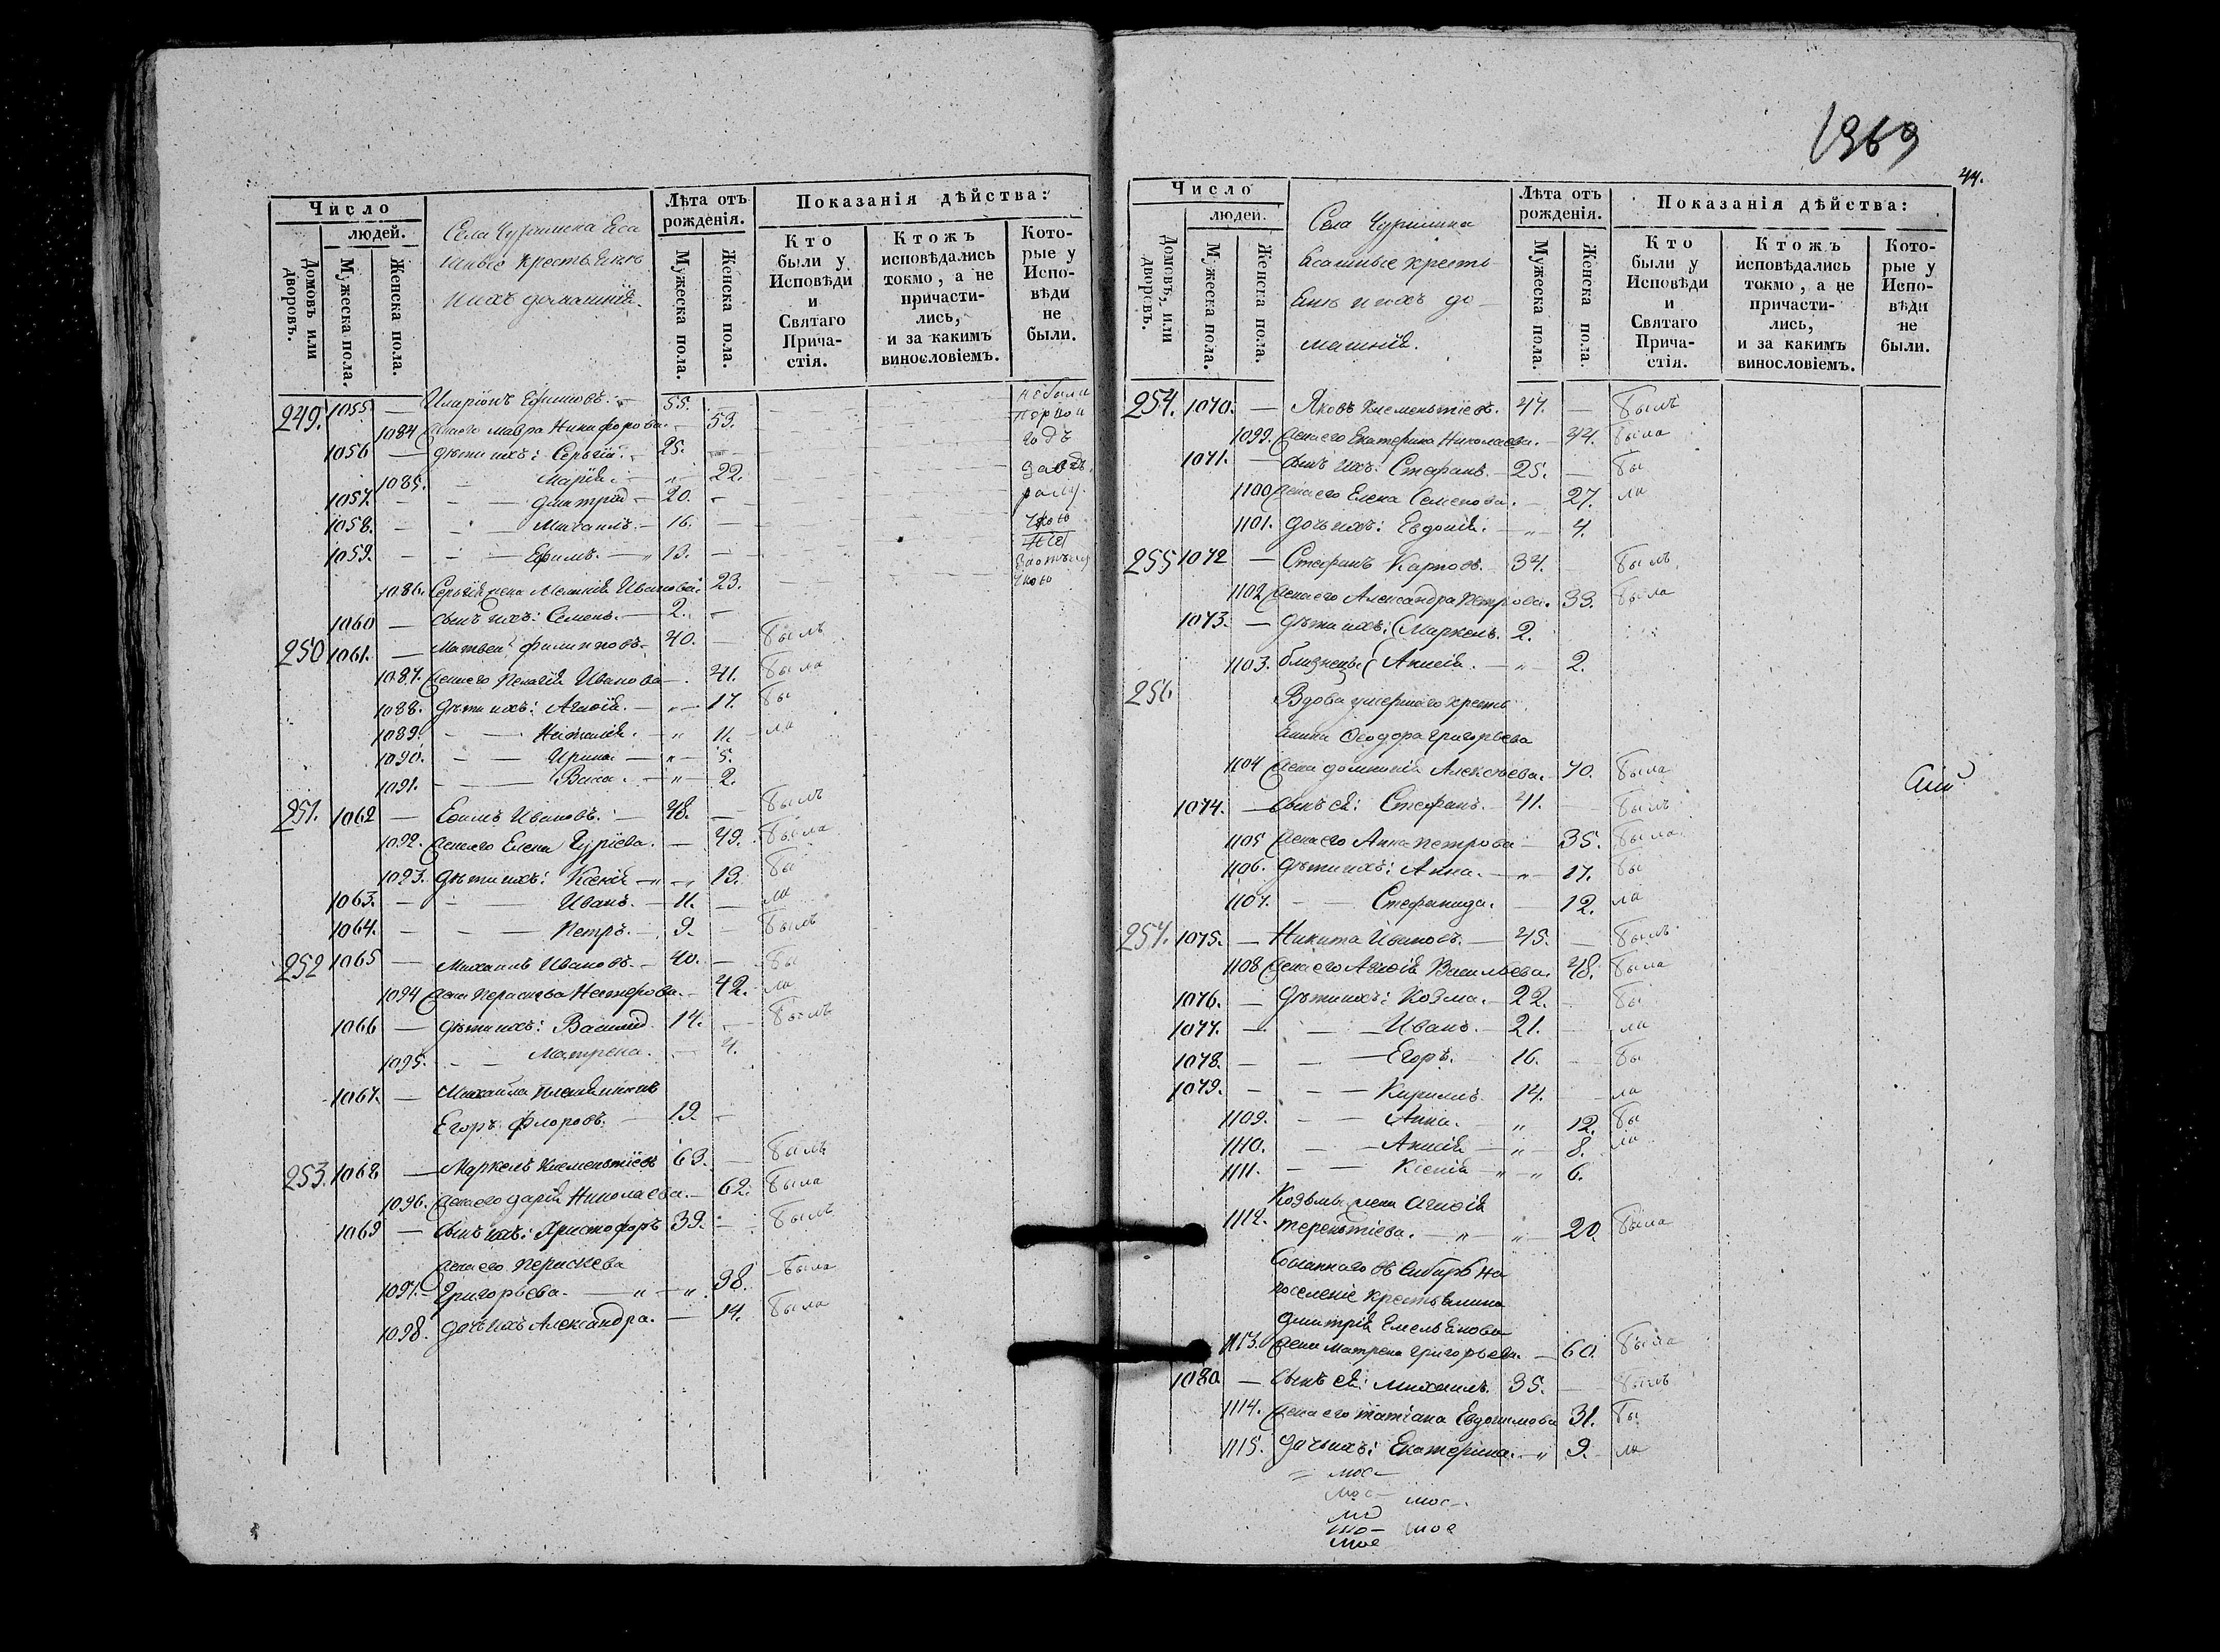 Число
людей.
Домовъ или дворовъ.
Мужеска пола.
Женска пола.
Села Чуришка Яса
шные крестьяне
и ихъ домашнія
Лѣта отъ рожденія.
Мужеска пола.
Женска пола.
Показанія дѣйства:
Кто были у Исповѣди и Святаго Прича-стія.
Ктожъ исповѣдались токмо, а не причасти-лись, и за какимъ винословіемъ.
Кото-рые у Испо-вѣди не были.
249. 1055 — Иларіонъ Ефимовъ. — 55. — небыли
1084 Жена его Мавра Никифорова. — 53. первой
1056 — Дѣти ихъ: Сергій. — 25. — годъ
1085. — Марія. — „ — 22.
1057. — Дмитрій — 20. —
1058. — Михаилъ. — 16. —
1059. — Ефимъ. — „ 13. —
1086. Сергія жена Меланія Иванова. 23.
1060 — Сынъ ихъ: Семенъ. — 2. —
250 1061. — Матвей Филиповъ. 40. — Былъ
1087. Жена его Пелагія Иванова — 41. Была
1088. Дѣти ихъ: Агафія. — „ — 17. Бы
1089. — Наталія. — „ 11. — ла
1090. — Ирина. — „ — 5.
1091. — Васа. — „ — 2.
251. 1062 — Ефимъ Ивановъ. — 48. — Былъ
1092. Жена его Елена Гуріева. — 49. Была
1093. Дѣти ихъ: Ксенія — „ — 13. Бы
1063. — Иванъ. — 11. — ла
1064. — Петръ. — 9. — Былъ
252 1065 — Михаилъ Ивановъ. — 40. — Бы
1094 Жена Параскева Нестерова. — 42. ла
1066 — Дѣти ихъ: Василій. 14. — Былъ
1095. — Матрена. — 4.
1067. — Михайла племянникъ
Егоръ Флоровъ. — 19. —
253. 1068 — Маркелъ Клементіевъ 63. — Былъ
1096. Жена его Дарія Николаева. — 62. Была
1069 — Сынъ ихъ: Христофоръ 39. — Былъ
Жена его Параскева
1097. Григорьева. — „ — „ 38. — Была
1098. Дочь ихъ Александра. — 14. Была
1969
44.
Число
людей.
Домовъ, или дворовъ.
Мужеска пола.
Женска пола.
Села Чуришка
Ясашные кресть-
яне и ихъ до-
машнія.
Лѣта отъ рожденія.
Мужеска пола.
Женска пола.
Показанія дѣйства:
Кто были у Исповѣди и Святаго Прича-стія.
Ктожъ исповѣдались токмо, а не причасти-лись, и за какимъ винословіемъ.
Кото-рые у Испо-вѣди не были.
254. 1070. — Яковъ Клементіевъ. 47. — Былъ
1099. Жена его Екатерина Николаева. — 44. Была
1071. — Сынъ ихъ: Стефанъ. — 25. — Бы
1100 Жена его Елена Семенова. — 27. ла
1101. Дочь ихъ: Евдокія. — „ — 4.
255 1072 — Стефанъ Карповъ. 34. — Былъ
1102 Жена его Александра Петрова. 33. Была
1073. — Дѣти ихъ: (Маркелъ. 2.
1103. близнецы (Анисія. — „ — 2.
256. Вдова умершаго кресть
янина Ѳеодора Григорьева
1104 Жена Домникія Алексѣева. 70. Была
1074. — Сынъ ея: Стефанъ. — 41. — Былъ
1105 Жена его Анна Петрова — 35. Была
1106. Дѣти ихъ: Анна. — „ — 17. Бы
1107. — Стефанида. — 12. ла
257. 1075. — Никита Ивановъ. — 45. — Былъ
1108 Жена его Агафія Васильева. 48. Была
1076. — Дѣти ихъ: Козма. — 22. — Бы
1077. — Иванъ. — 21. — ла
1078. — Егоръ. — 16. — Бы
1079. — Кирилъ. 14. — ла
1109. — Анна. — „ 12. Бы
1110. — Анисія — „ — 8. ла
1111. — Ксенія — „ — „ 6.
Козьмы жена Агафія
1112. Терентіева. — „ — „ 20. Была
Сосланнаго въ Сибирь на
поселеніе крестьянина
Дмитрія Емельянова
1113. Жена Матрена Григорьева. — 60. Была
1080 — Сынъ ея: Михаилъ. 35. — Былъ
1114. Жена его Татіана Евдокимова 31. Бы
1115. Дочь ихъ: Екатерина. — „ 9. ла
мос-
мос- мос-
мо
мо- мое
мое